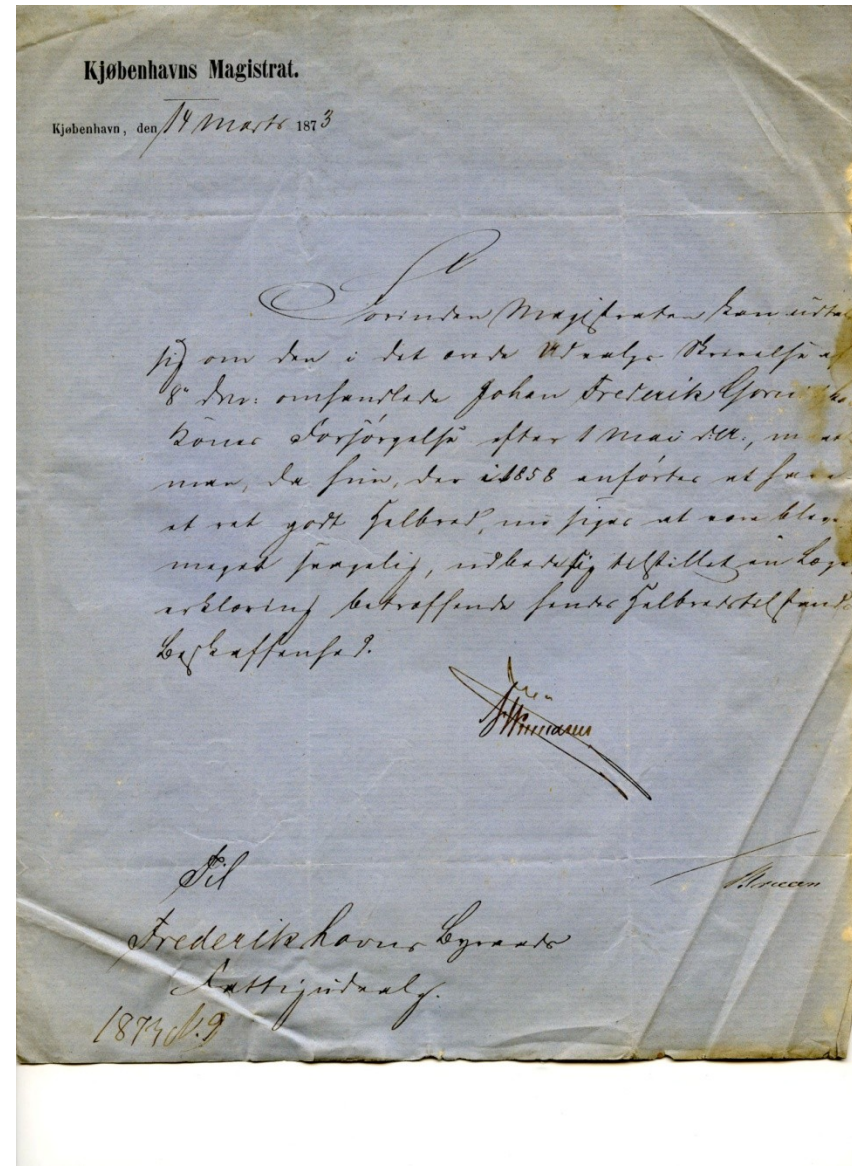 Kjøbenhavns Magistrat.
Kjøbenhavn, den 14 Marts 1873
Forinden Magistraten kan udtale
sig om den i det ærede Udvalgs Skrivelse af
8de dns: omhandlede Johan Frederik
Kones Forsørgelse efter 1 Mai d.A., maa
man, da hun, der i 1858 anførtes at have
et ret godt Helbred, nu siges at være bleven
meget svagelig, udbede sig tilstillet en Læge
erklæring betræffende hendes Helbredstilstands
Beskaffenhed.
Til
Frederikshavns Byraads
Fattigudvalg.
1873 N. 9